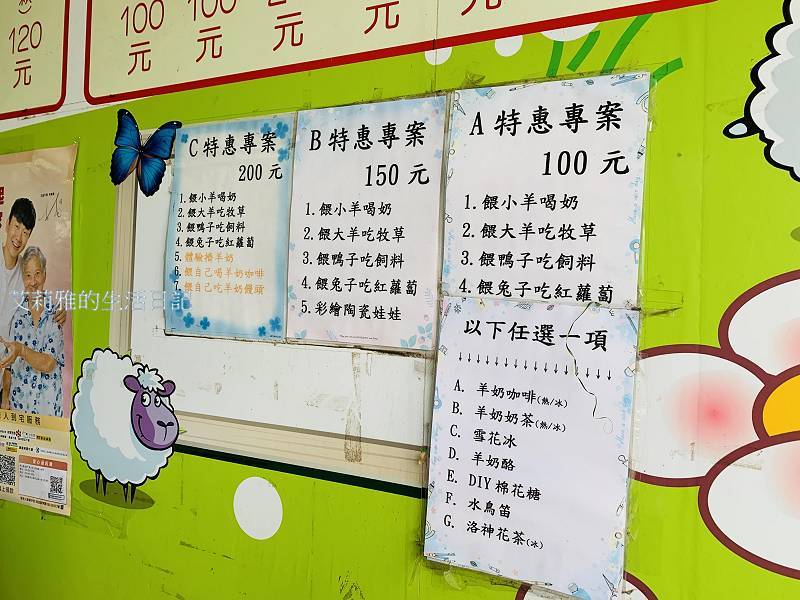 120
元
100
元
100
元
元
100
元
C 特惠專案
200 元
1. 餵小羊喝奶
2. 餵大羊吃牧草
3. 餵鴨子吃飼料
4. 餵兔子吃紅蘿蔔
5. 體驗擠羊奶
6. 餵自己喝羊奶咖啡
7. 餵自己吃羊奶饅頭
B 特惠專案
150 元
1. 餵小羊喝奶
2. 餵大羊吃牧草
3. 餵鴨子吃飼料
4. 餵兔子吃紅蘿蔔
5. 彩繪陶瓷娃娃
A 特惠專案
100 元
1. 餵小羊喝奶
2. 餵大羊吃牧草
3. 餵鴨子吃飼料
4. 餵兔子吃紅蘿蔔
以下任選一項
↓↓↓↓↓↓↓↓↓↓↓↓↓↓↓
A. 羊奶咖啡(熱/冰)
B. 羊奶奶茶(熱/冰)
C. 雪花冰
D. 羊奶酪
E. DIY 棉花糖
F. 水鳥笛
G. 洛神花茶(冰)
艾莉雅的生活日記
人到宅服務